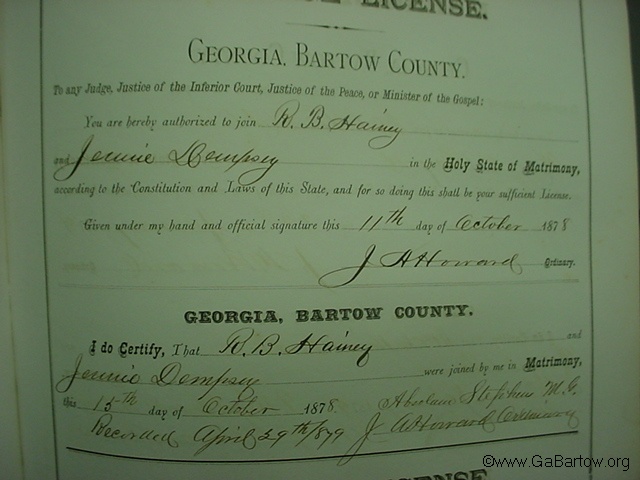 LICENSE.
GEORGIA, BARTOW COUNTY.
To any Judge, Justice of the Inferior Court, Justice of the Peace, or Minister of the Gospel:
You are hereby authorized to join R. B. Hainey
and Jennie Dempsey in the Holy State of Matrimony,
according to the Constitution and Laws of this State, and for so doing this shall be your sufficient License.
Given under my hand and official signature this 11th day of October 1878
J A Howard Ordinary.
GEORGIA, BARTOW COUNTY.
I do Certify, That R. B. Hainey and
Jennie Dempsey were joined by me in Matrimony,
this 15th day of October 1878 Absalom Stephens M.G.
Recorded April 29th 1879 J A Howard Ordinary
LICENSE
©www.GaBartow.org